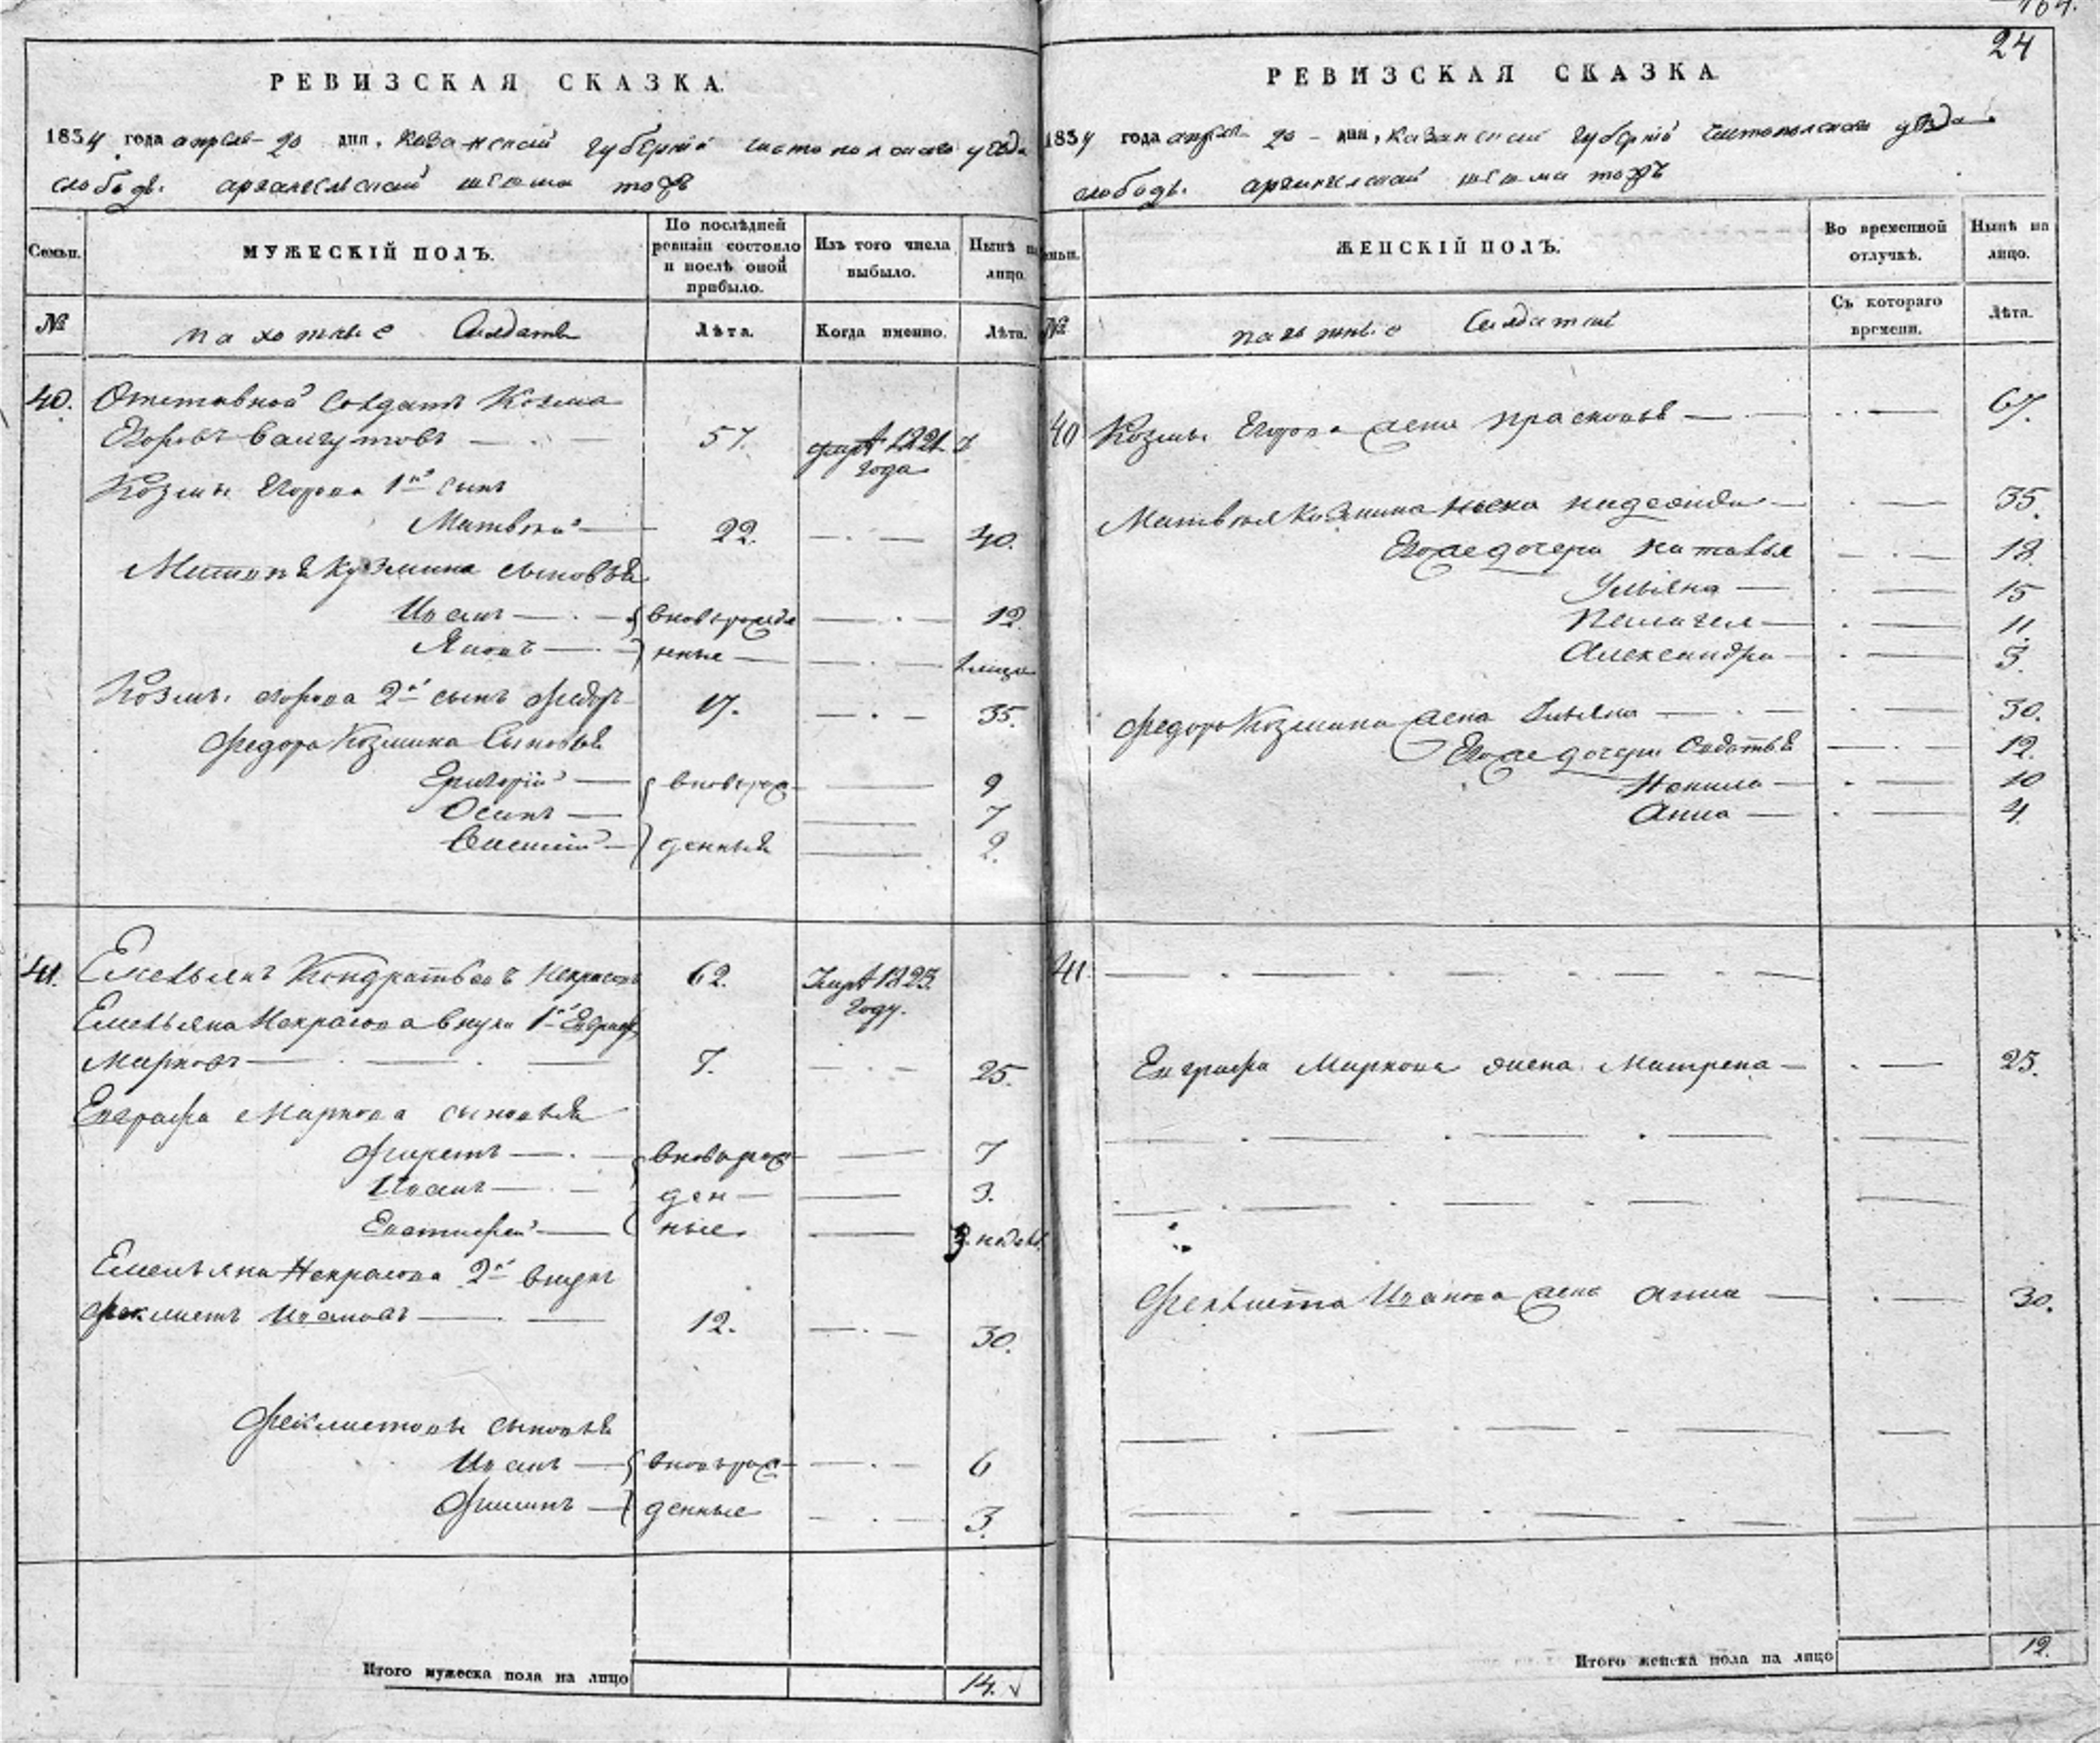 164.
24
РЕВИЗСКАЯ СКАЗКА.
1834 года апреля 20 дня, Казанской губернии Чистопольскаго уезда
слободы архангельской шешма тожъ
Семьи.
МУЖЕСКІЙ ПОЛЪ.
По послѣдней ревизіи состояло и послѣ оной прибыло.
Изъ того числа выбыло.
Нынѣ на лицо.
№
пахотные Солдаты
Лѣта.
Когда именно.
Лѣта.
40. Отставной Солдатъ Козма
Егоровъ 57. 1821
года
Козмы Егорова 1й сынъ
Матвей 22. 40.
Матвея Кузмина сыновья
Иванъ вновьрожде 12.
Яковъ нные
Козмы Егорова 2й сынъ Федоръ 17. 35.
Федора Козмина Сыновья
Григорій вновьрож 9
Осипъ 7
Василий денныя 2.
41. Емельянъ Кондратьевъ Некрасовъ 62. 1823.
году.
Емельяна Некрасова внукъ 1й Евграфъ
Марковъ 7. 25.
Евграфа Маркова сыновья
Фирстъ вноворож 7
Иванъ ден 3.
Евстифей ные 3. недели
Емельяна Некрасова 2й внукъ
Феклистъ Ивановъ 12. 30.
Феклистовы сыновья
Иванъ вновьрож 6
Филипъ денные 3.
Итого мужеска пола на лицо 14.
РЕВИЗСКАЯ СКАЗКА.
1834 года апреля 20 дня, казанской губернии Чистопольскаго уезда
слободы архангелской шешма тожъ
Семьи.
ЖЕНСКІЙ ПОЛЪ.
Во временной отлучкѣ.
Нынѣ на лицо.
№
пахотные Солдатки
Съ котораго времени.
Лѣта.
40 Козмы Егорова жена Прасковья 67.
Матвея Козмина жена 35.
Егожедочери Наталья 18.
Ульяна 15
Пелагея 11.
Александра 3.
Федора Козмина жена Ульяна 30.
Егоже дочери 12.
Ненила 10
Анна 4.
41.
Евграфа Маркова жена Матрена 25.
Феклиста Иванова жена Анна 30.
Итого женска пола на лицо 12.